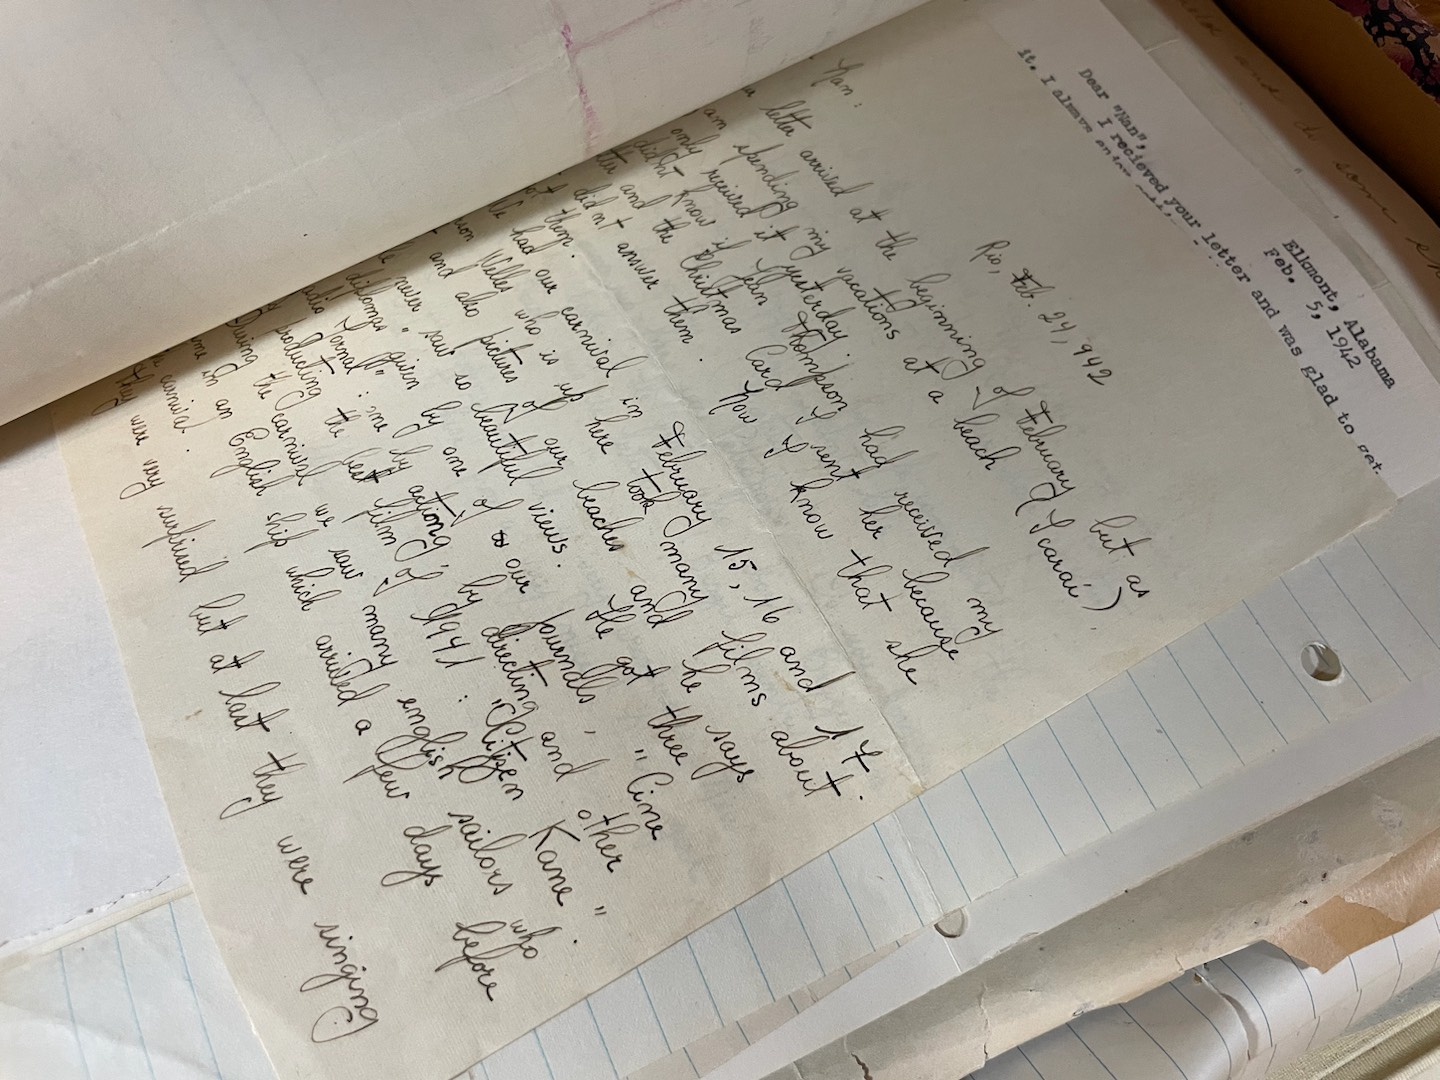 Rio, Feb. 24, 942
Nan:
letter arrived at the beginning of February but as
am spending my vacations at a beach (Icaraí)
only received it yesterday.
didn't know if Jean Thompson had received my
letter and the Christmas Card I sent her because
didn't answer them. Now I know that she
got them.
We had our carnival in February 15, 16 and 17.
Welles who is up here took many films about
and also pictures of our beaches and he says
he never saw so beautiful views. He got three
diplomas given by one of our journals, "Cine
Radio Jornal": one by acting, by directing and other
by producting the best film of 1941: "Citizen Kane".
During the carnival we saw many english sailors who
came in an English ship which arrived a few days before
carnival.
they were very surprised but at last they were singing
Elkmont, Alabama
Feb. 5, 1942
Dear "Nan",
I recieved your letter and was glad to get
it. I always
some